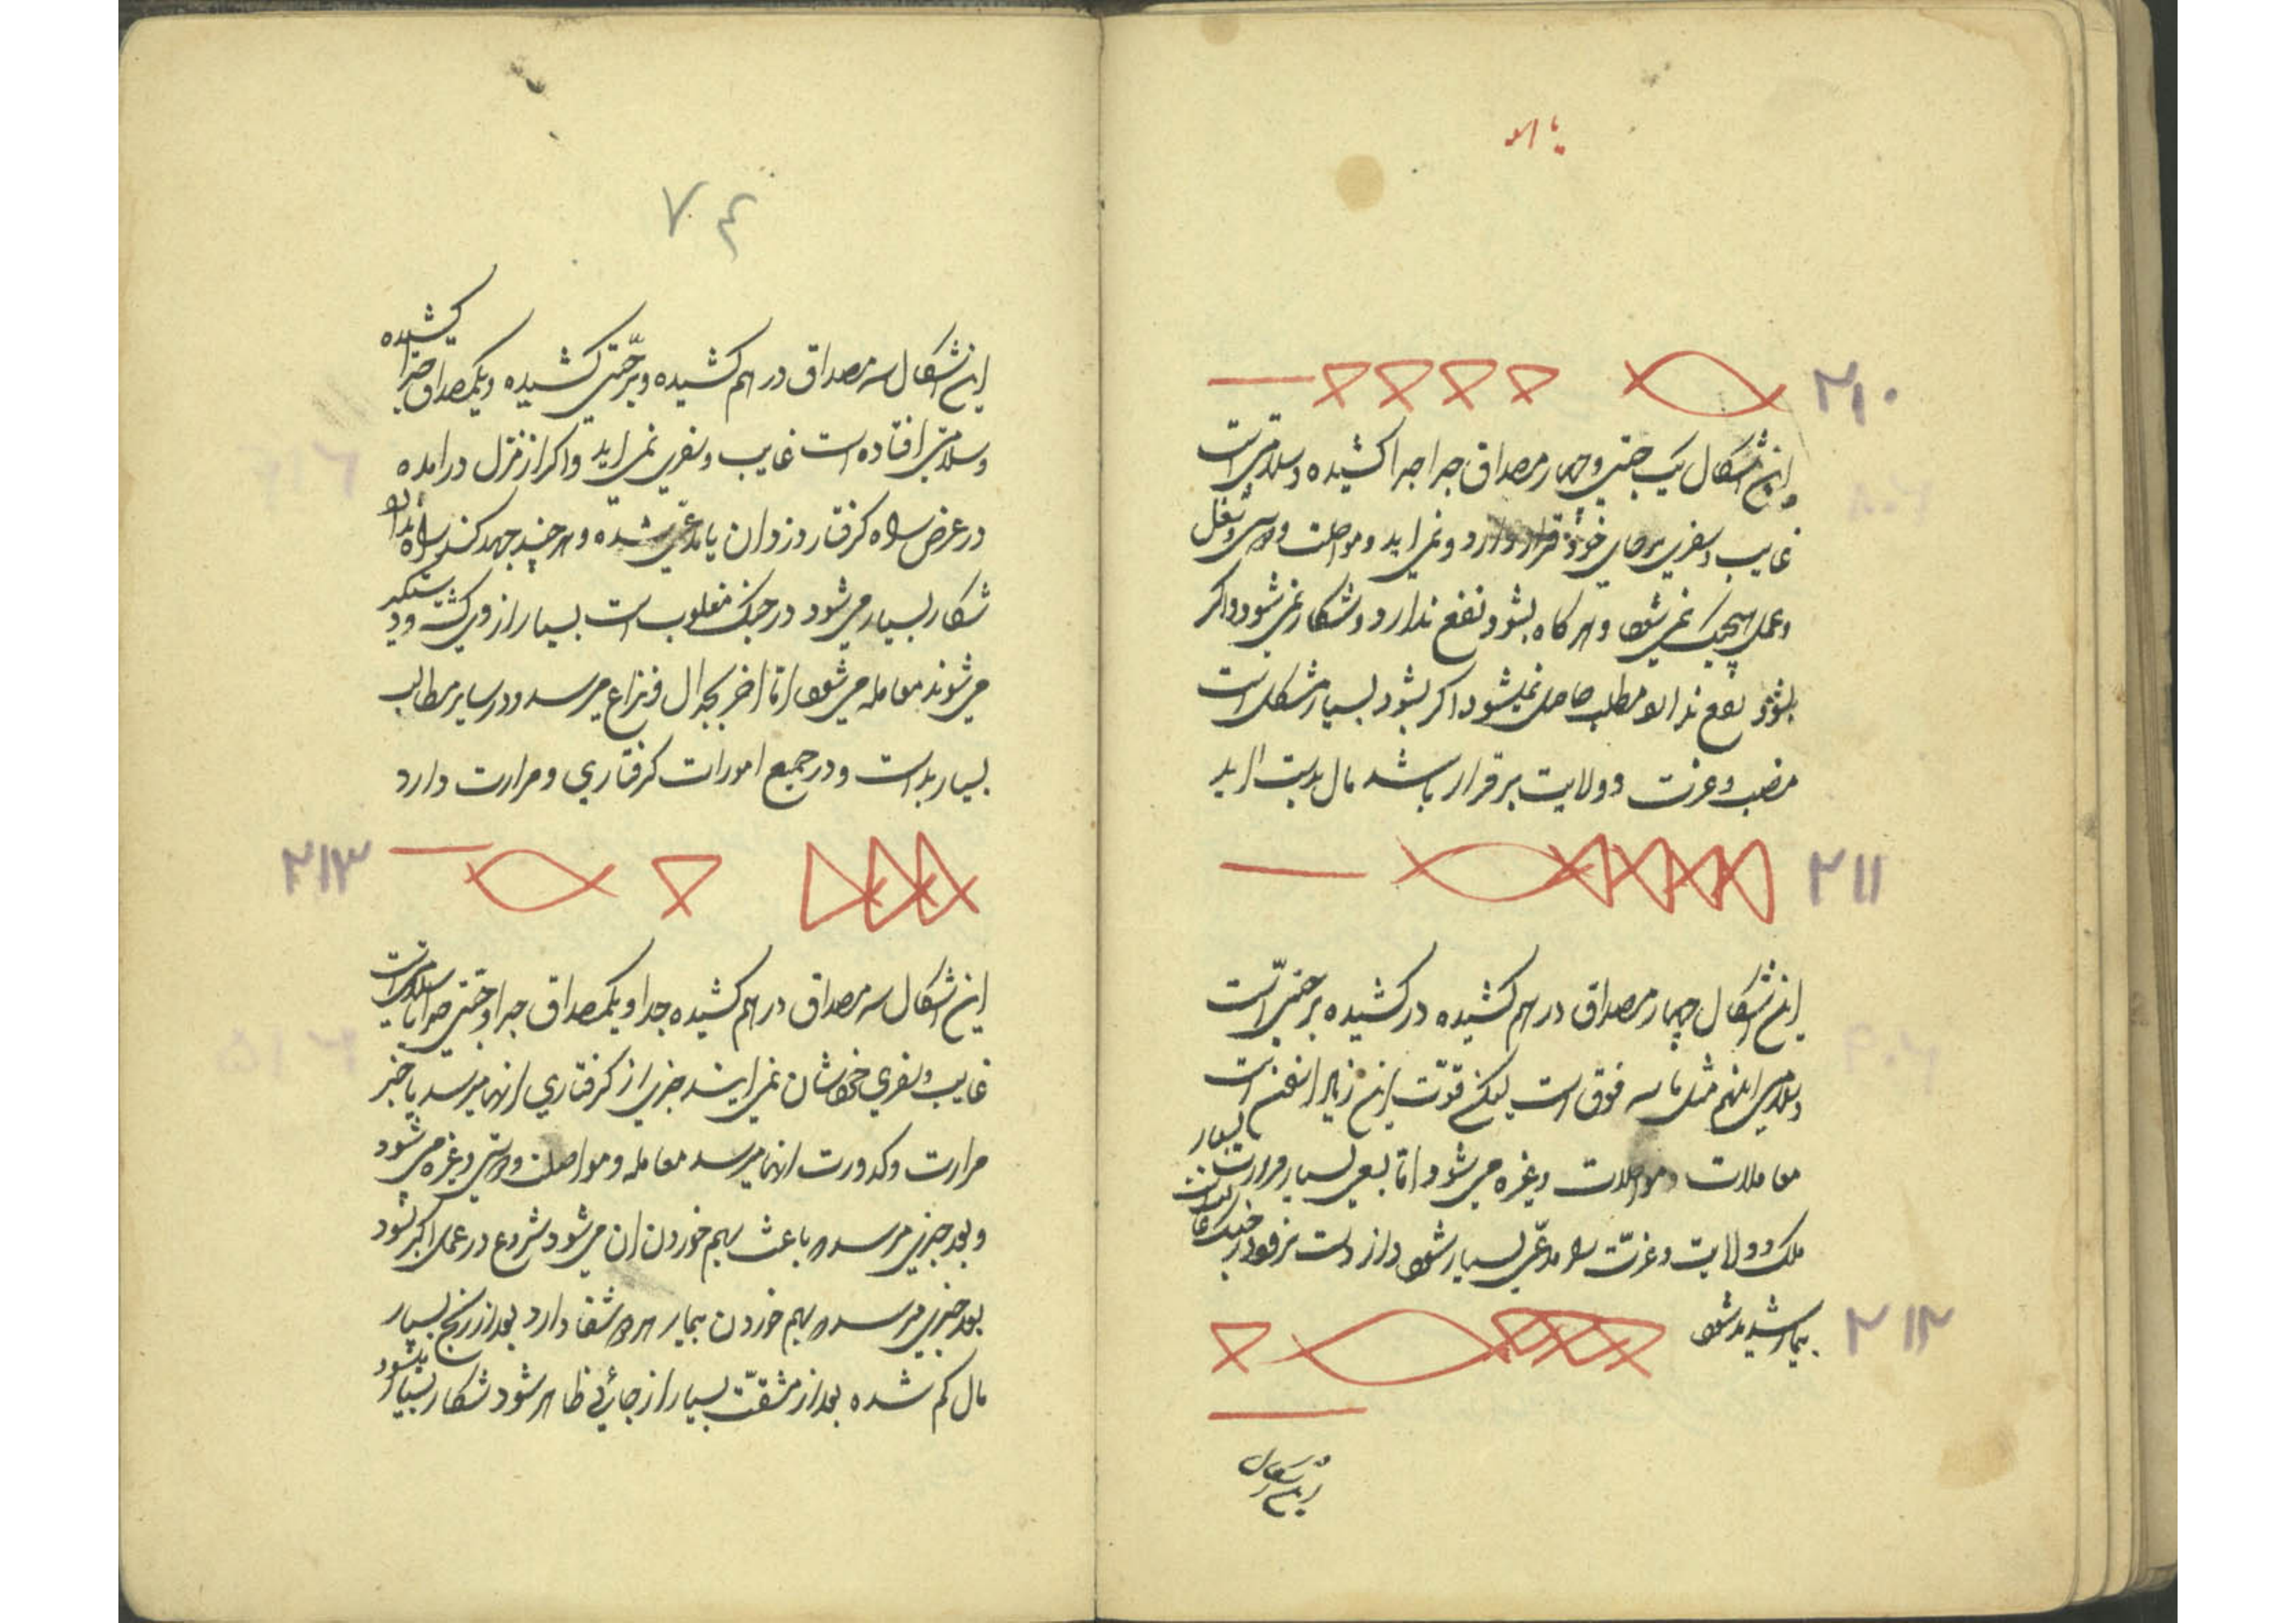 یا الله
۲۱۰
این اشکال یک جفتی و چهار مصداق جدا جدا کشیده و سلامتی است
غایب و سفری برجای خود قرار دارد و نمی اید و مواصلت و
و عمل هیچیک نمی شود و هر گاه بشود نفع ندارد و شکار نمی شود و اگر
بشود نفع ندارد مطلب حاصل نمیشود اگر بشود بسیار مشکل است
منصب و عزت و ولایت برقرار باشد مال بدست اید
۲۱۱
این اشکال چهار مصداق در هم کشیده در کشیده بر جفتی است
و سلامتی اینهم مثل فوق است لیکن قوّت این زیاد است
معاملات و مواصلات وغیره می شود امّا بسعی بسیار
ملک و ولایت و عزّت را مدّعی بسیار شود و از دست
بیمار شدید شود
۲۱۲
این اشکال
۷۴
این اشکال سه مصداق در هم کشیده و بر جفتی کشیده و یکمصداق جدا کشیده
و سلامتی افتاده است غایب و سفری نمی اید و اگر از منزل در امده
در عرض راه گرفتار دزدان یا مدّعی شده و هر چند جهد کند راه ندارد
شکار بسیار می شود در جنگ مغلوب است بسیار از وی کشته و دستگیر
می شوند معامله می شود امّا اخر بجدال و نزاع میرسد و در سایر مطالب
بسیار بد است و در جمیع امورات گرفتاری و مرارت دارد
۲۱۳
این اشکال سه مصداق در هم کشیده جدا و یکمصداق جدا و جفتی جدا با سلامتی است
غایب و سفری خودشان نمی ایند خبری از گرفتاری انها میرسد یا خبر
مرارت و کدورت انها میرسد معامله و مواصلت و وغیره می شود
و بعد خبری میرسد و باعث بهم خوردن ان می شود شروع در عمل اگر شود
بعد خبری میرسد و بهم خوردن بیمار شفا دارد بعد از رنج بسیار
مال گم شده بعد از مشقّت بسیار از جائی ظاهر شود شکار بسیار بشود